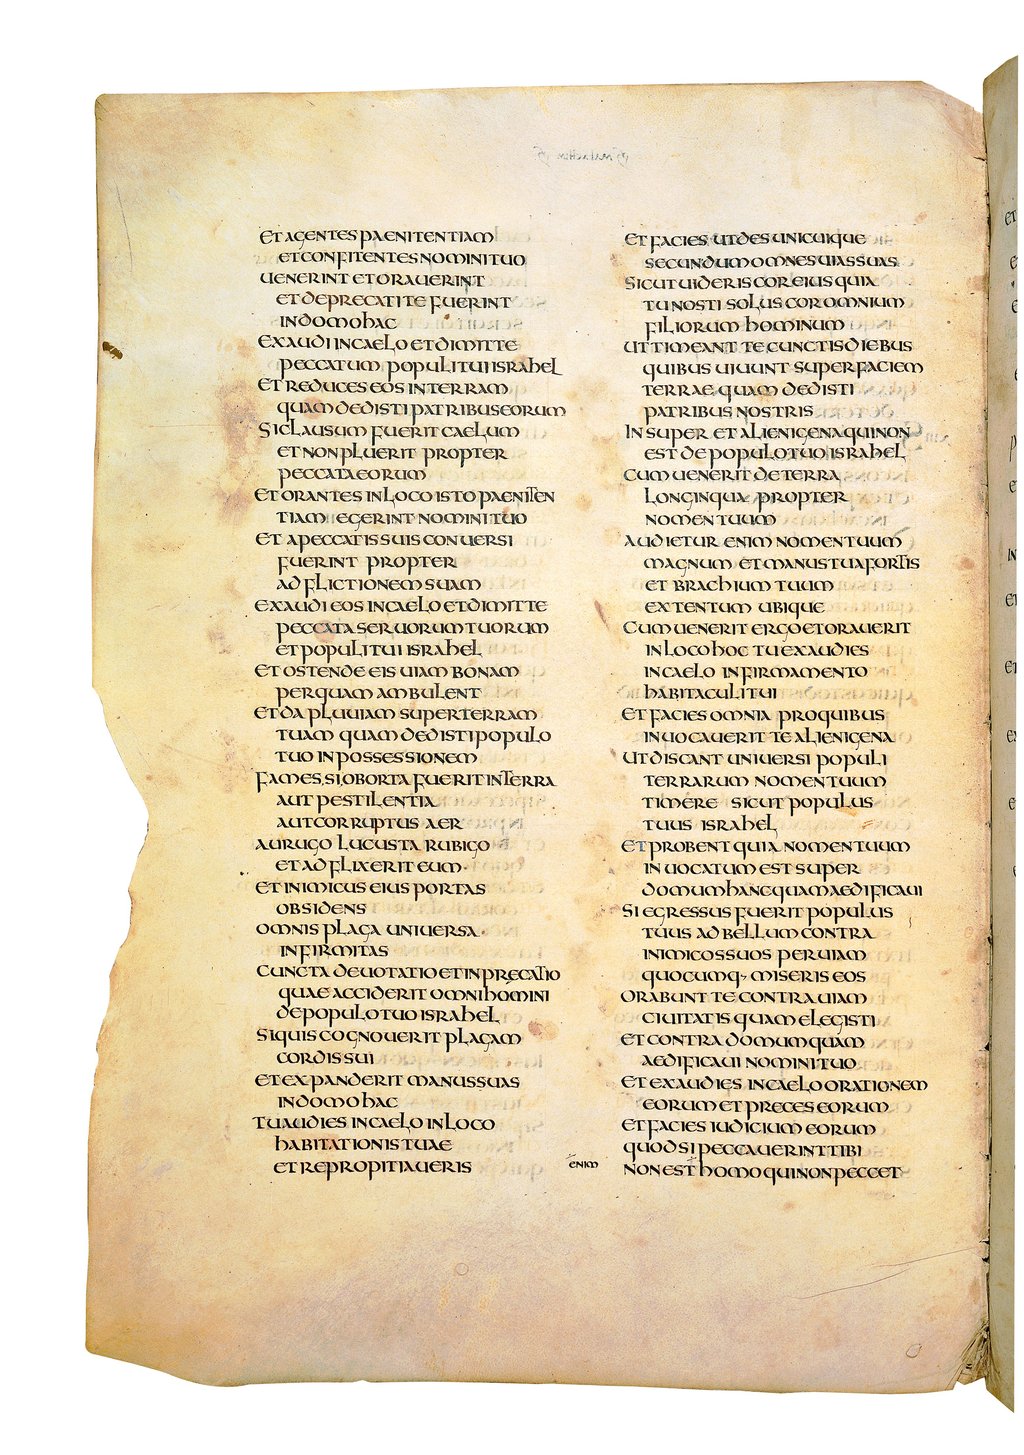 ET AGENTES PAENITENTIAM
ET CONFITENTES NOMINI TUO
UENERINT ET ORAUERINT
ET DEPRECATI TE FUERINT
IN DOMO HAC
EXAUDI IN CAELO ET DIMITTE
PECCATUM POPULI TUI ISRAHEL
ET REDUCES EOS IN TERRAM
QUAM DEDISTI PATRIBUS EORUM
SI CLAUSUM FUERIT CAELUM
ET NON PLUERIT PROPTER
PECCATA EORUM
ET ORANTES IN LOCO ISTO PAENITEN
TIAM EGERINT NOMINI TUO
ET A PECCATIS SUIS CONUERSI
FUERINT PROPTER
ADFLICTIONEM SUAM
EXAUDI EOS IN CAELO ET DIMITTE
PECCATA SERUORUM TUORUM
ET POPULI TUI ISRAHEL
ET OSTENDE EIS UIAM BONAM
PER QUAM AMBULENT
ET DA PLUUIAM SUPER TERRAM
TUAM QUAM DEDISTI POPULO
TUO IN POSSESSIONEM
FAMES SI OBORTA FUERIT IN TERRA
AUT PESTILENTIA
AUT CORRUPTUS AER
AURUGO LUCUSTA RUBIGO
ET ADFLIXERIT EUM
ET INIMICUS EIUS PORTAS
OBSIDENS
OMNIS PLAGA UNIUERSA
INFIRMITAS
CUNCTA DEUOTATIO ET INPRECATIO
QUAE ACCIDERIT OMNI HOMINI
DE POPULO TUO ISRAHEL
SI QUIS COGNOUERIT PLAGAM
CORDIS SUI
ET EXPANDERIT MANUS SUAS
IN DOMO HAC
TU AUDIES IN CAELO IN LOCO
HABITATIONIS TUAE
ET REPROPITIAUERIS
ET FACIES UT DES UNICUIQUE
SECUNDUM OMNES UIAS SUAS
SICUT UIDERIS COR EIUS QUIA
TU NOSTI SOLUS COR OMNIUM
FILIORUM HOMINUM
UT TIMEANT TE CUNCTIS DIEBUS
QUIBUS UIUUNT SUPER FACIEM
TERRAE QUAM DEDISTI
PATRIBUS NOSTRIS
INSUPER ET ALIENIGENA QUI NON
EST DE POPULO TUO ISRAHEL
CUM UENERIT DE TERRA
LONGINQUA PROPTER
NOMEN TUUM
AUDIETUR ENIM NOMEN TUUM
MAGNUM ET MANUS TUA FORTIS
ET BRACHIUM TUUM
EXTENTUM UBIQUE
CUM UENERIT ERGO ET ORAUERIT
IN LOCO HOC TU EXAUDIES
IN CAELO IN FIRMAMENTO
HABITACULI TUI
ET FACIES OMNIA PRO QUIBUS
INUOCAUERIT TE ALIENIGENA
UT DISCANT UNIUERSI POPULI
TERRARUM NOMEN TUUM
TIMERE SICUT POPULUS
TUUS ISRAHEL
ET PROBENT QUIA NOMEN TUUM
INUOCATUM EST SUPER
DOMUM HANC QUAM AEDIFICAUI
SI EGRESSUS FUERIT POPULUS
TUUS AD BELLUM CONTRA
INIMICOS SUOS PER UIAM
QUOCUMQ· MISERIS EOS
ORABUNT TE CONTRA UIAM
CIUITATIS QUAM ELEGISTI
ET CONTRA DOMUM QUAM
AEDIFICAUI NOMINI TUO
ET EXAUDIES IN CAELO ORATIONEM
EORUM ET PRECES EORUM
ET FACIES IUDICIUM EORUM
QUOD SI PECCAUERINT TIBI
ENIM
NON EST HOMO QUI NON PECCET